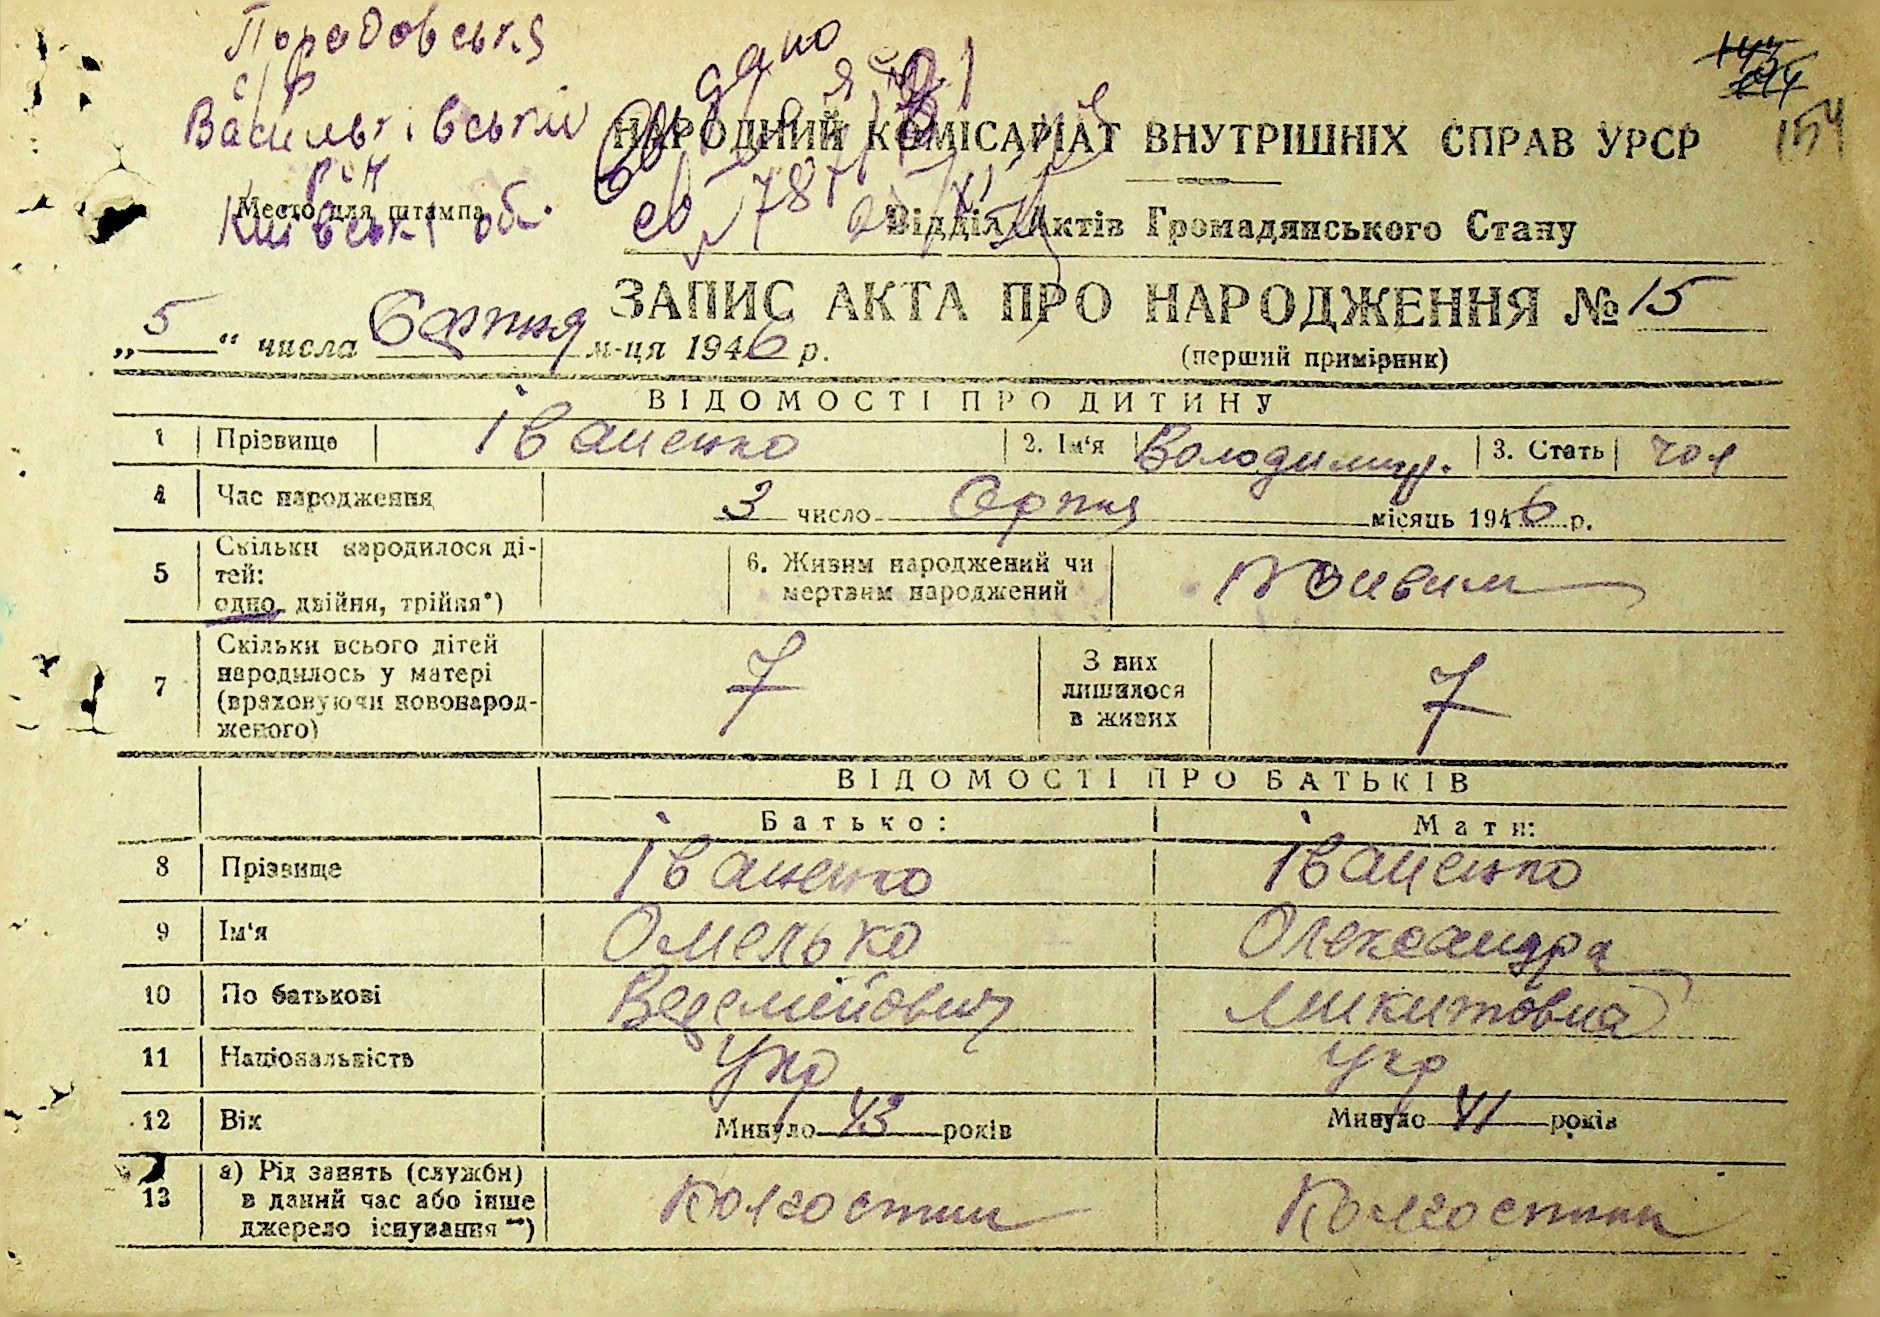 с/р
Васильківський
р-н
Место для штампа
Київської обл.
Видано
НАРОДНИЙ КОМІСАРІАТ ВНУТРІШНІХ СПРАВ УРСР
154
Відділ Актів Громадянського Стану
ЗАПИС АКТА ПРО НАРОДЖЕННЯ № 15
„5“ числа Серпня м-ця 1946 р.
(перший примірник)
ВІДОМОСТІ ПРО ДИТИНУ
1 Прізвище Іваненко 2. Ім‘я Володимир. 3. Стать чол
4 Час народження 3 число Серпня місяць 1946 р.
5 Скільки народилося ді-
тей:
одно, двійня, трійня*)
6. Живим народжений чи
мертвим народжений
живим
7 Скільки всього дітей
народилось у матері
(враховуючи новонарод-
женого)
7
З них
лишилося
в живих
7
ВІДОМОСТІ ПРО БАТЬКІВ
Батько: Мати:
8 Прізвище Іваненко Іваненко
9 Ім‘я Омелько Олександра
10 По батькові Микитовна
11 Національність Укр Укр
12 Вік Минуло 43 років Минуло 41 років
13 а) Рід занять (служби)
в даний час або інше
джерело існування **)
Колгоспник Колгоспник